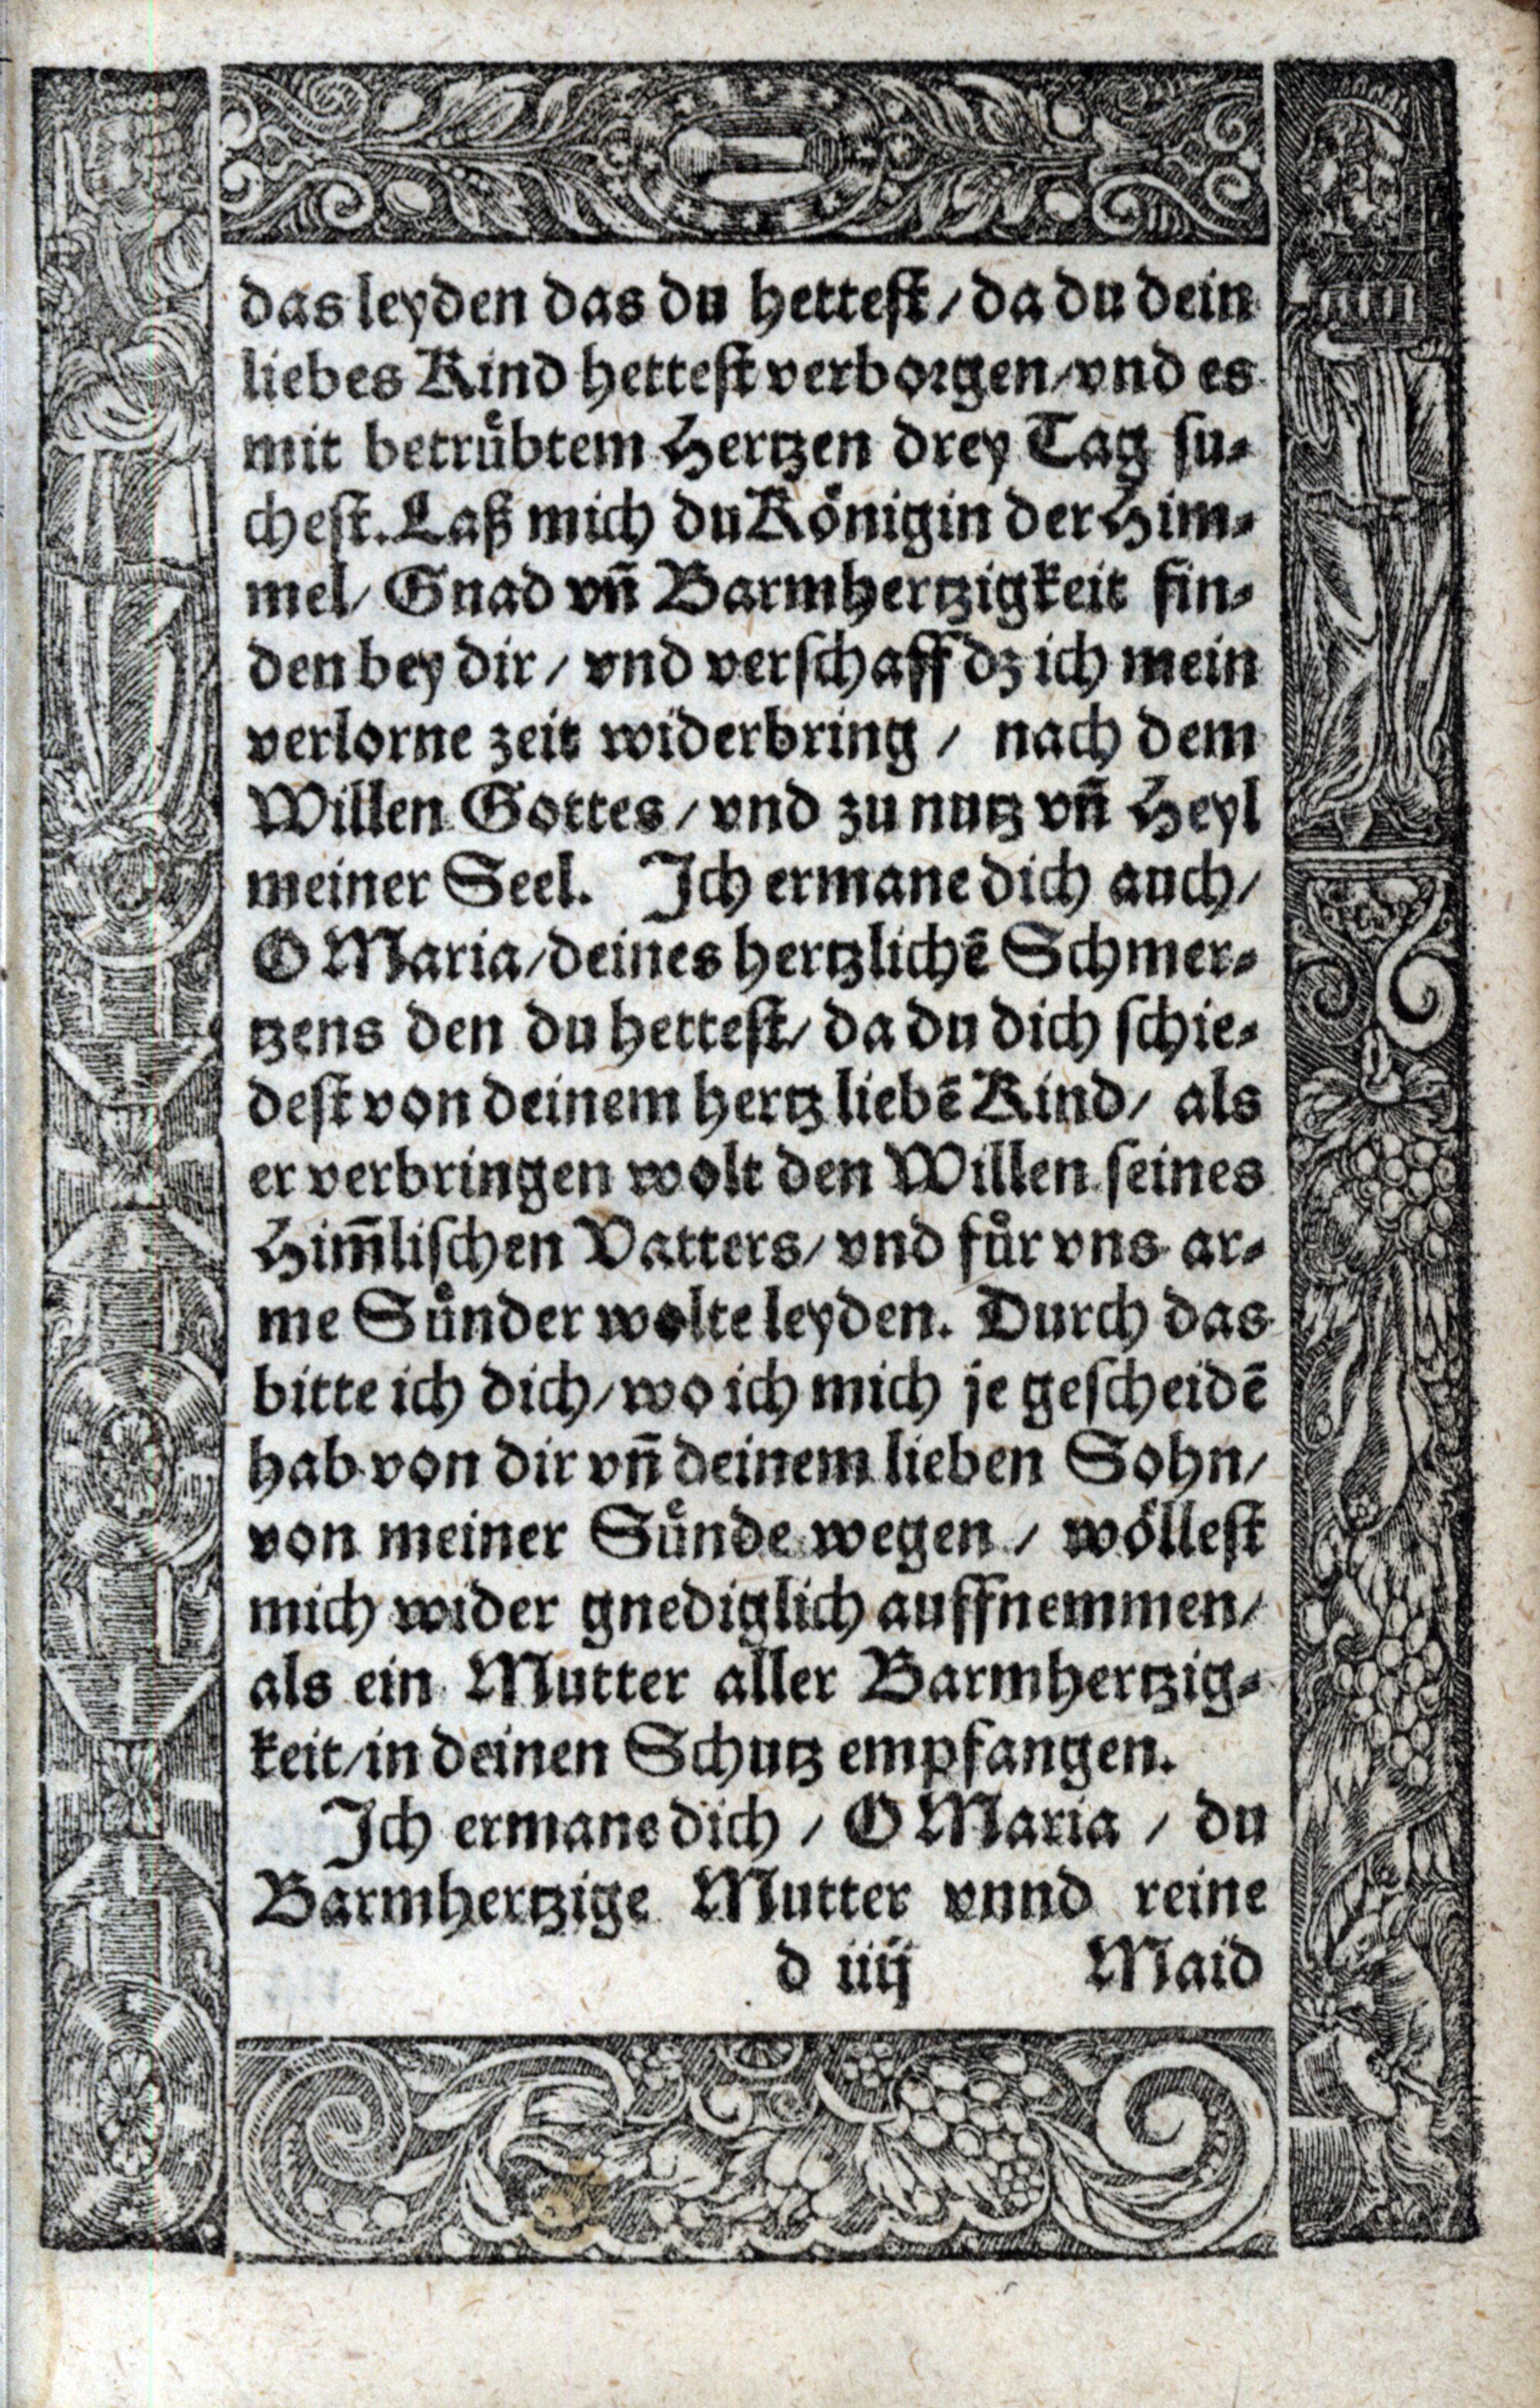 das leyden das du hettest / da du dein
liebes Kind hettest verborgen / vnd es
mit betruͤbtem Hertzen drey Tag su-
chest. Laß mich du Koͤnigin der Him-
mel / Gnad vn̄ Barmhertzigkeit fin-
den bey dir / vnd verschaff dz ich mein
verlorne zeit widerbring / nach dem
Willen Gottes / vnd zu nutz vn̄ Heyl
meiner Seel. Ich ermane dich auch /
O Maria / deines hertzlichē Schmer-
tzens den du hettest / da du dich schie-
dest von deinem hertz liebē Kind / als
er verbringen wolt den Willen seines
Him̄lischen Vatters / vnd fuͤr vns ar-
me Suͤnder wolte leyden. Durch das
bitte ich dich / wo ich mich je gescheidē
hab von dir vn̄ deinem lieben Sohn /
von meiner Suͤnde wegen / woͤllest
mich wider gnediglich auffnemmen /
als ein Mutter aller Barmhertzig-
keit / in deinen Schutz empfangen.
Ich ermane dich / O Maria / du
Barmhertzige Mutter vnnd reine
d iiij Maid